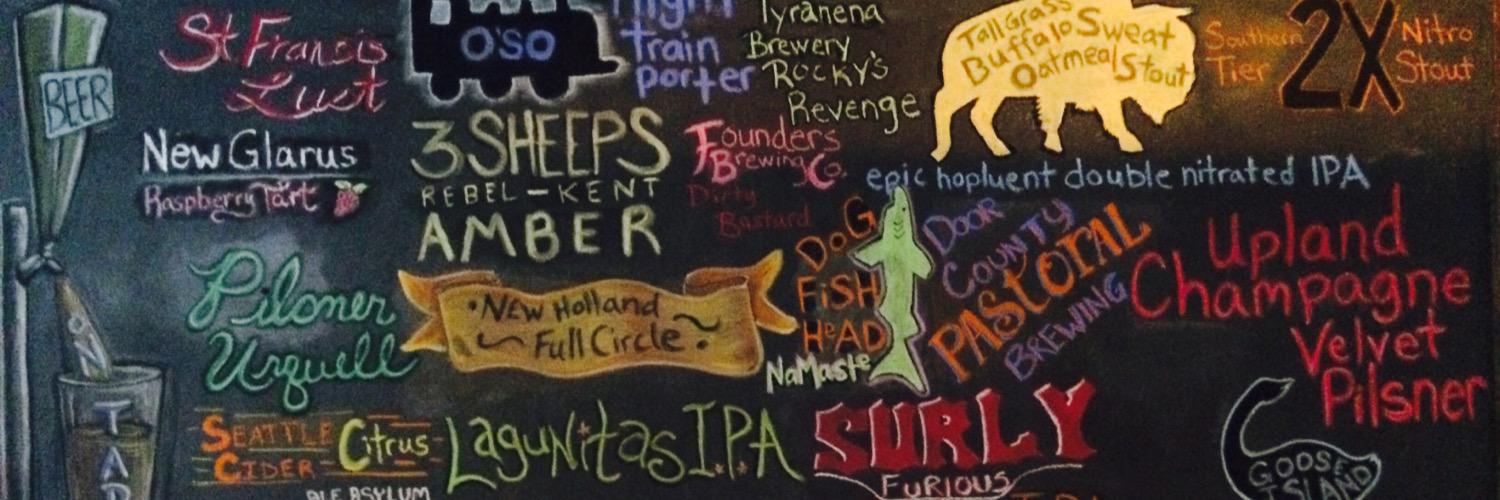 BEER
ON
TAP
St Francis
Lust
New Glarus
Raspberry Tart
Pilsner
Urquell
SEATTLE
CIDER
Citrus
ALE ASYLUM
O'SO
night
train
porter
3 SHEEPS
REBEL-KENT
AMBER
New Holland
Full Circle
Lagunitas I.P.A
Tyranena
Brewery
Rocky's
Revenge
Founders
Brewing Co.
Dirty
Bastard
DOG
FISH
HEAD
NaMaste
Tall Grass
Buffalo Sweat
Oatmeal Stout
Southern
Tier
2X
Nitro
Stout
epic hopluent double nitrated IPA
DOOR
COUNTY
PASTORAL
BREWING
SURLY
FURIOUS
Upland
Champagne
Velvet
Pilsner
GOOSE
ISLAND